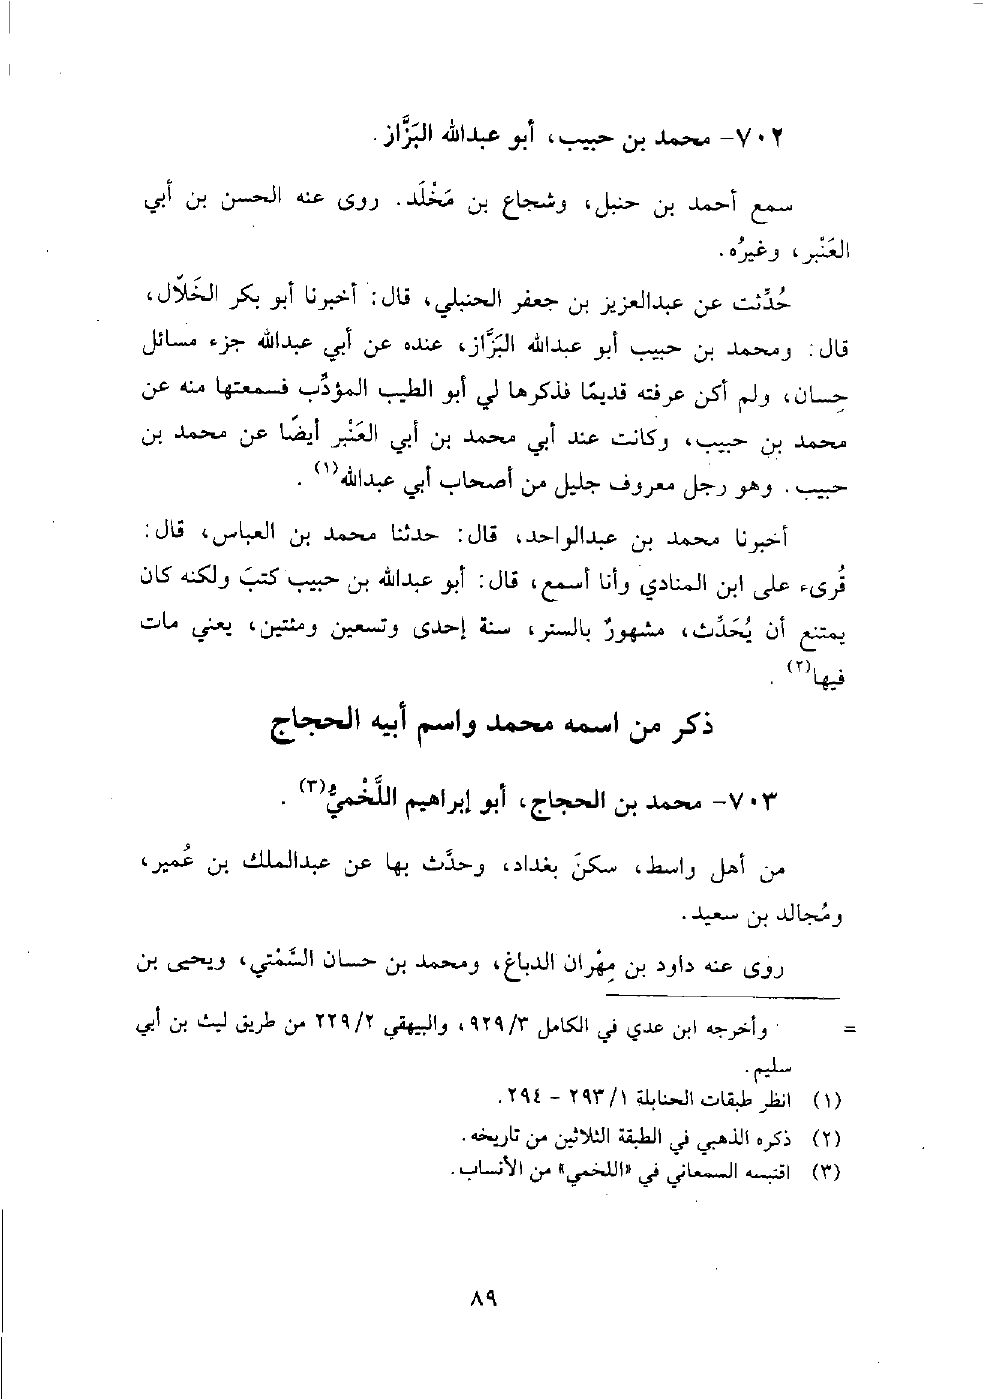 ٧٠٢- محمد بن حبيب، أبو عبدالله البَزَّاز.
سمع أحمد بن حنبل، وشجاع بن مَخْلَد. روى عنه الحسن بن أبي
العَنْبر، وغيرُه.
حُدِّثت عن عبدالعزيز بن جعفر الحنبلي، قال: أخبرنا أبو بكر الخَلّال،
قال: ومحمد بن حبيب أبو عبدالله البَزَّاز، عنده عن أبي عبدالله جزء مسائل
حِسان، ولم أكن عرفته قديمًا فذكرها لي أبو الطيب المؤدِّب فسمعتها منه عن
محمد بن حبيب، وكانت عند أبي محمد بن أبي العَنْبر أيضًا عن محمد بن
حبيب. وهو رجل معروف جليل من أصحاب أبي عبدالله(١).
أخبرنا محمد بن عبدالواحد، قال: حدثنا محمد بن العباس، قال:
قُرىء على ابن المنادي وأنا أسمع، قال: أبو عبدالله بن حبيب كتبَ ولكنه كان
يمتنع أن يُحَدِّث، مشهورٌ بالستر، سنة إحدى وتسعين ومئتين، يعني مات
فيها(٢).
ذكر من اسمه محمد واسم أبيه الحجاج
٧٠٣- محمد بن الحجاج، أبو إبراهيم اللَّخْميُّ(٣).
من أهل واسط، سكنَ بغداد، وحدَّث بها عن عبدالملك بن عُمير،
ومُجالد بن سعيد.
روى عنه داود بن مِهْران الدباغ، ومحمد بن حسان السَّمْتي، ويحيى بن
= وأخرجه ابن عدي في الكامل ٩٢٩/٣، والبيهقي ٢٢٩/٢ من طريق ليث بن أبي
سليم.
(١) انظر طبقات الحنابلة ٢٩٣/١ - ٢٩٤.
(٢) ذكره الذهبي في الطبقة الثلاثين من تاريخه.
(٣) اقتبسه السمعاني في «اللخمي» من الأنساب.
٨٩